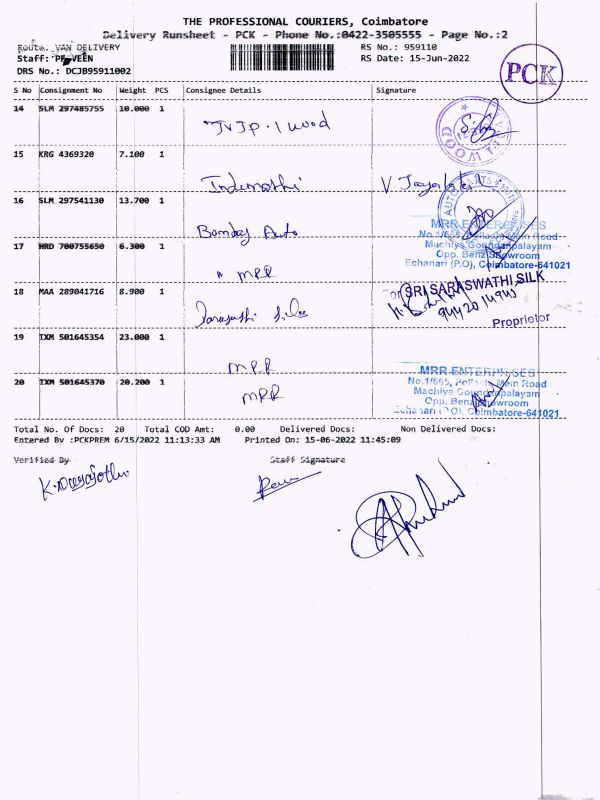 THE PROFESSIONAL COURIERS, Coimbatore
Delivery Runsheet - PCK - Phone No.:0422-3505555 - Page No.:2
Route: VAN DELIVERY
RS No.: 959110
Staff: PRAVEEN
RS Date: 15-Jun-2022
DRS No.: DCJB95911002
PCK
S No Consignment No Weight PCS Consignee Details Signature
14 SLM 297485755 10.000 1
wood
15 KRG 4369320 7.100 1
16 SLM 297541130 13.700 1
Bombay Auto
MRR ENTERPRISES
No.1/665, Pollachi Main Road
Machiya Goundanpalayam
Opp. Benz Showroom
Echanari (P.O), Coimbatore-641021
17 HRD 700755650 6.300 1
" MRR
18 MAA 289041716 8.900 1
For SRI SARASWATHI SILK
94420 14943
Proprietor
19 IXM 501645354 23.000 1
MRR
20 IXM 501645370 20.200 1
MRR
MRR ENTERPRISES
No.1/665, Pollachi Main Road
Machiya Goundanpalayam
Opp. Benz Showroom
Echanari (P.O), Coimbatore-641021
Total No. Of Docs: 20 Total COD Amt: 0.00 Delivered Docs: Non Delivered Docs:
Entered By :PCKPREM 6/15/2022 11:13:33 AM Printed On: 15-06-2022 11:45:09
Verified By Staff Signature